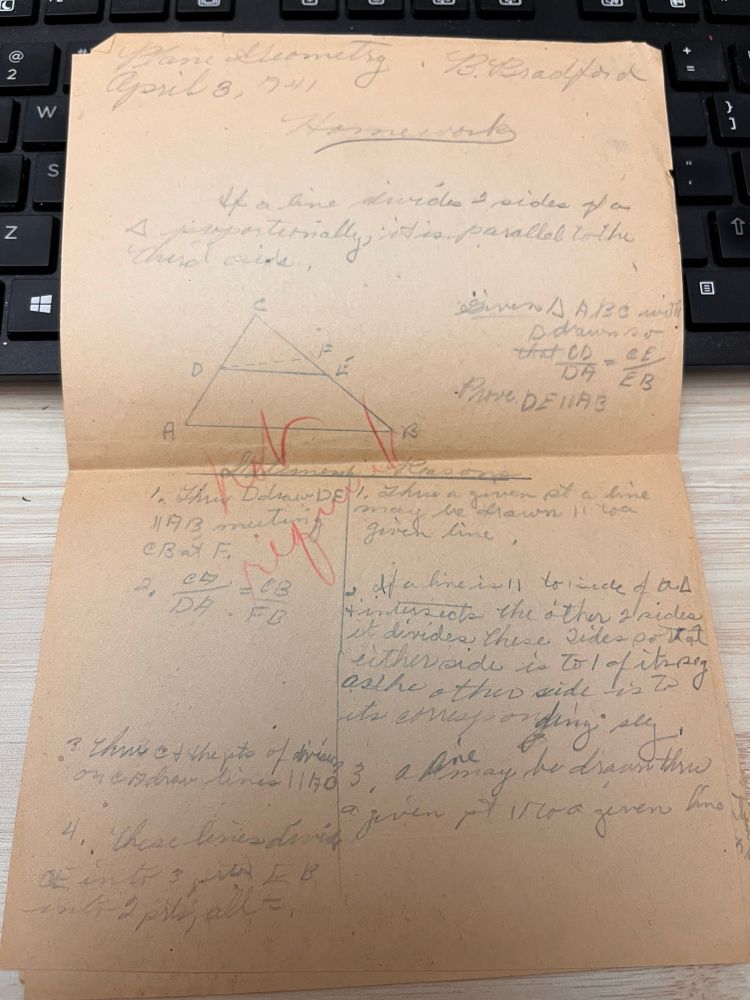 Plane Geometry . B. Bradford
April 3, 1941
Homework
If a line divides 2 sides of a
Δ proportionally, it is parallel to the
third side.
Given Δ ABC with
D drawn so
that CD/DA = CE/EB
Prove DE || AB
C
D
F
E
A
B
not required
Statements Reasons
1. Thru D draw DE
|| AB meeting
CB at F.
1. Thru a given pt a line
may be drawn || to a
given line.
2. CA/DA = CB/FB
2. If a line is || to 1 side of a Δ
+ intersects the other 2 sides
it divides these sides so that
either side is to 1 of its seg
as the other side is to
its corresponding seg.
3. Thru C + the pts of division
on CA draw lines || AB
3. a line may be drawn thru
a given pt || to a given line
4. These lines divide
CE into 3 pts EB
into 2 pts, all =.
@
2
W
S
Z
+
=
}
]